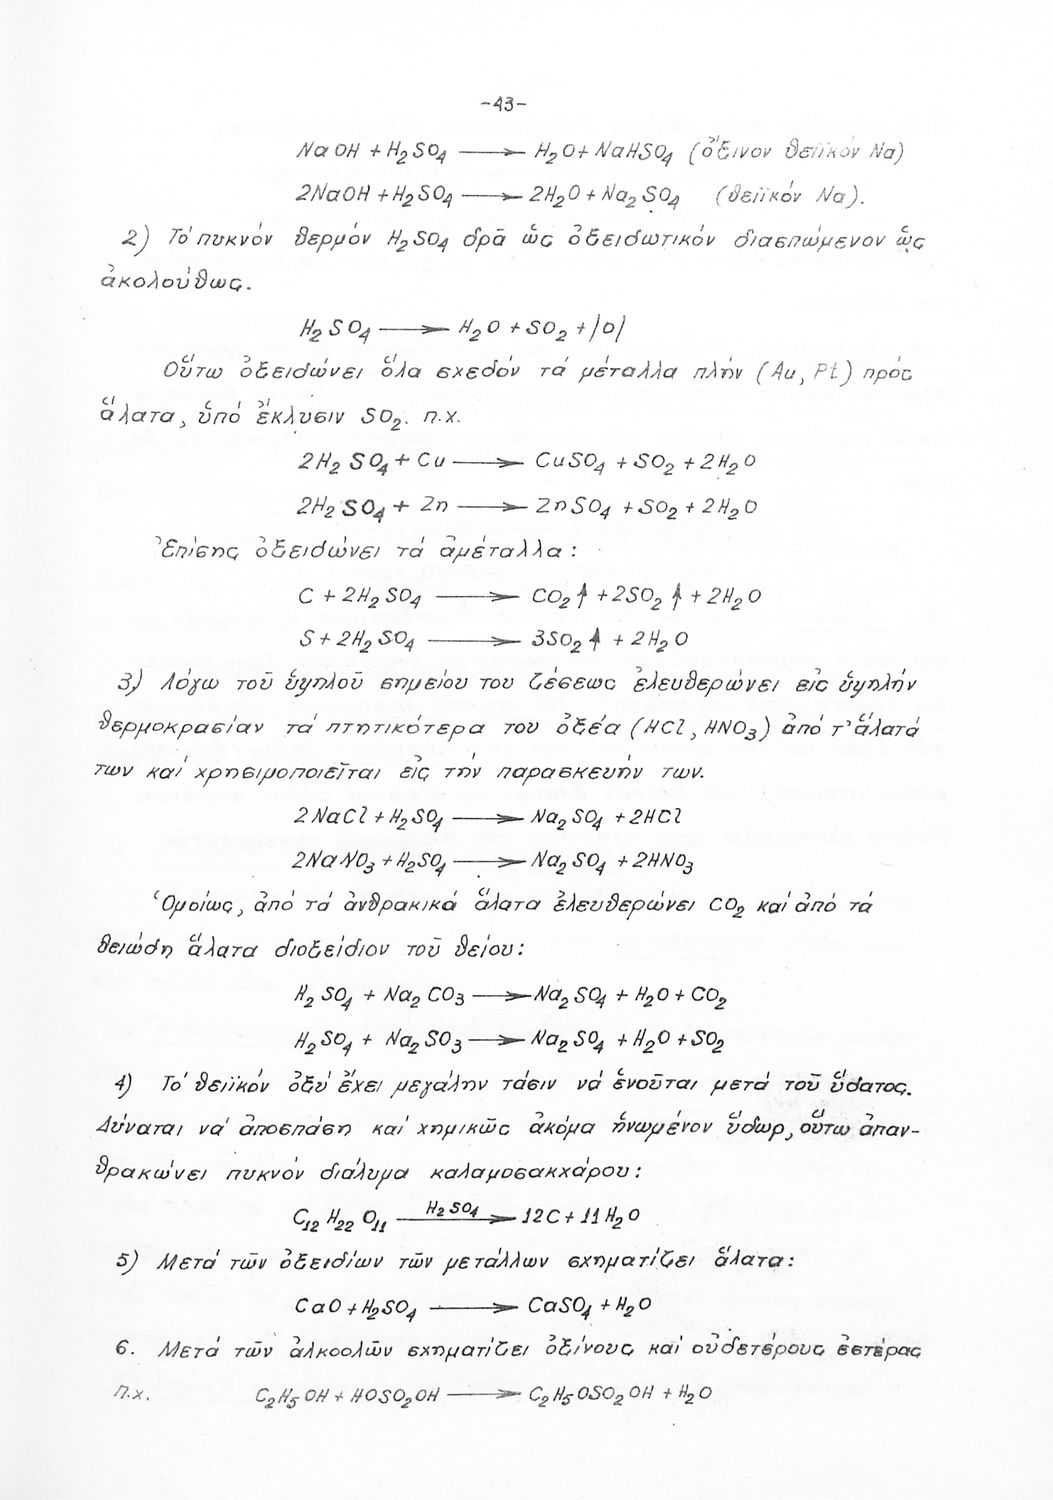 -43-
NaOH + H₂SO₄ ⟶ H₂O + NaHSO₄ (ὄξινον θειϊκόν Na)
2NaOH + H₂SO₄ ⟶ 2H₂O + Na₂SO₄ (θειϊκόν Na).
2) Τό πυκνόν θερμόν H₂SO₄ δρᾶ ὡς ὀξειδωτικόν διασπώμενον ὡς
ἀκολούθως.
H₂SO₄ ⟶ H₂O + SO₂ + /O/
Οὕτω ὀξειδώνει ὅλα σχεδόν τά μέταλλα πλήν (Au, Pt) πρός
ἅλατα, ὑπό ἔκλυσιν SO₂. π.χ.
2H₂SO₄ + Cu ⟶ CuSO₄ + SO₂ + 2H₂O
2H₂SO₄ + Zn ⟶ ZnSO₄ + SO₂ + 2H₂O
Ἐπίσης ὀξειδώνει τά ἀμέταλλα:
C + 2H₂SO₄ ⟶ CO₂↑ + 2SO₂↑ + 2H₂O
S + 2H₂SO₄ ⟶ 3SO₂↑ + 2H₂O
3) Λόγω τοῦ ὑψηλοῦ σημείου του ζέσεως ἐλευθερώνει εἰς ὑψηλήν
θερμοκρασίαν τά πτητικότερα του ὀξέα (HCl, HNO₃) ἀπό τ' ἅλατά
των καί χρησιμοποιεῖται εἰς τήν παρασκευήν των.
2NaCl + H₂SO₄ ⟶ Na₂SO₄ + 2HCl
2NaNO₃ + H₂SO₄ ⟶ Na₂SO₄ + 2HNO₃
Ὁμοίως, ἀπό τά ἀνθρακικά ἅλατα ἐλευθερώνει CO₂ καί ἀπό τά
θειώδη ἅλατα διοξείδιον τοῦ θείου:
H₂SO₄ + Na₂CO₃ ⟶ Na₂SO₄ + H₂O + CO₂
H₂SO₄ + Na₂SO₃ ⟶ Na₂SO₄ + H₂O + SO₂
4) Τό θειϊκόν ὀξύ ἔχει μεγάλην τάσιν νά ἑνοῦται μετά τοῦ ὕδατος.
Δύναται νά ἀποσπάση καί χημικῶς ἀκόμα ἡνωμένον ὕδωρ, οὕτω ἀπαν-
θρακώνει πυκνόν διάλυμα καλαμοσακχάρου:
C₁₂H₂₂O₁₁ ⟶ H₂SO₄ 12C + 11H₂O
5) Μετά τῶν ὀξειδίων τῶν μετάλλων σχηματίζει ἅλατα:
CaO + H₂SO₄ ⟶ CaSO₄ + H₂O
6. Μετά τῶν ἀλκοολῶν σχηματίζει ὀξίνους καί οὐδετέρους ἐστέρας
π.χ. C₂H₅OH + HOSO₂OH ⟶ C₂H₅OSO₂OH + H₂O